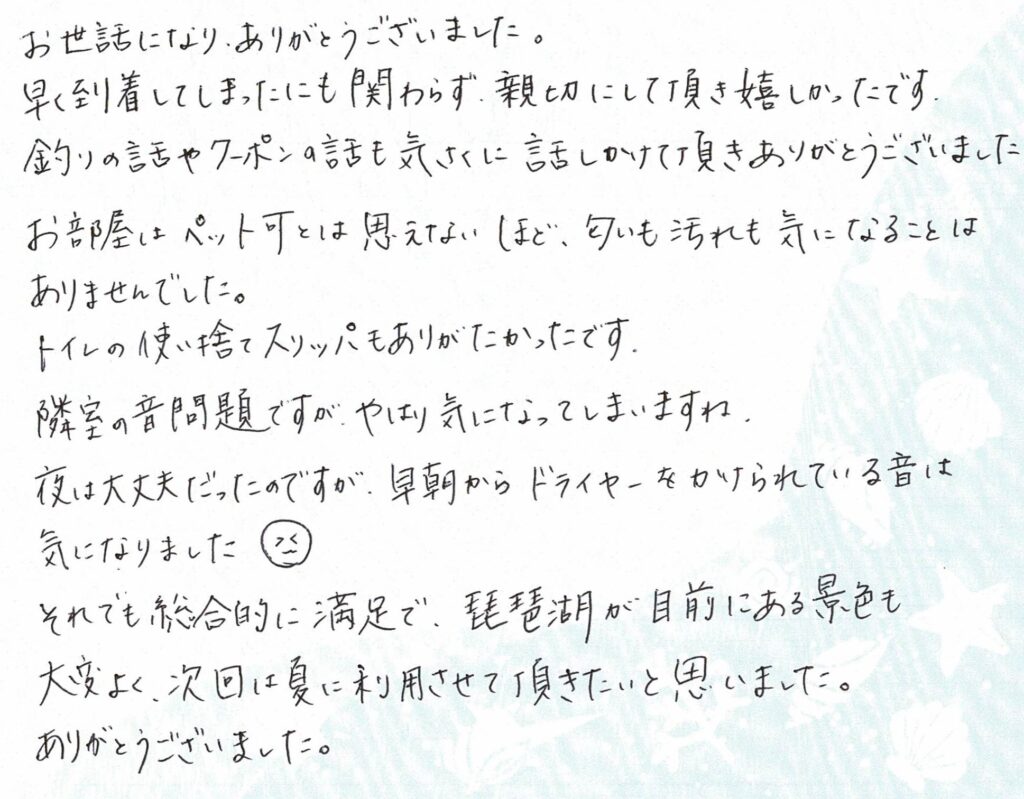 お世話になり、ありがとうございました。
早く到着してしまったにも関わらず、親切にして頂き嬉しかったです。
釣りの話やクーポンの話も気さくに話しかけて頂きありがとうございました
お部屋はペット可とは思えないほど、匂いも汚れも気になることは
ありませんでした。
トイレの使い捨てスリッパもありがたかったです.
隣室の音問題ですが、やはり気になってしまいますね.
夜は大丈夫だったのですが、早朝からドライヤーをかけられている音は
気になりました
それでも総合的に満足で、琵琶湖が目前にある景色も
大変よく、次回は夏に利用させて頂きたいと思いました。
ありがとうございました。